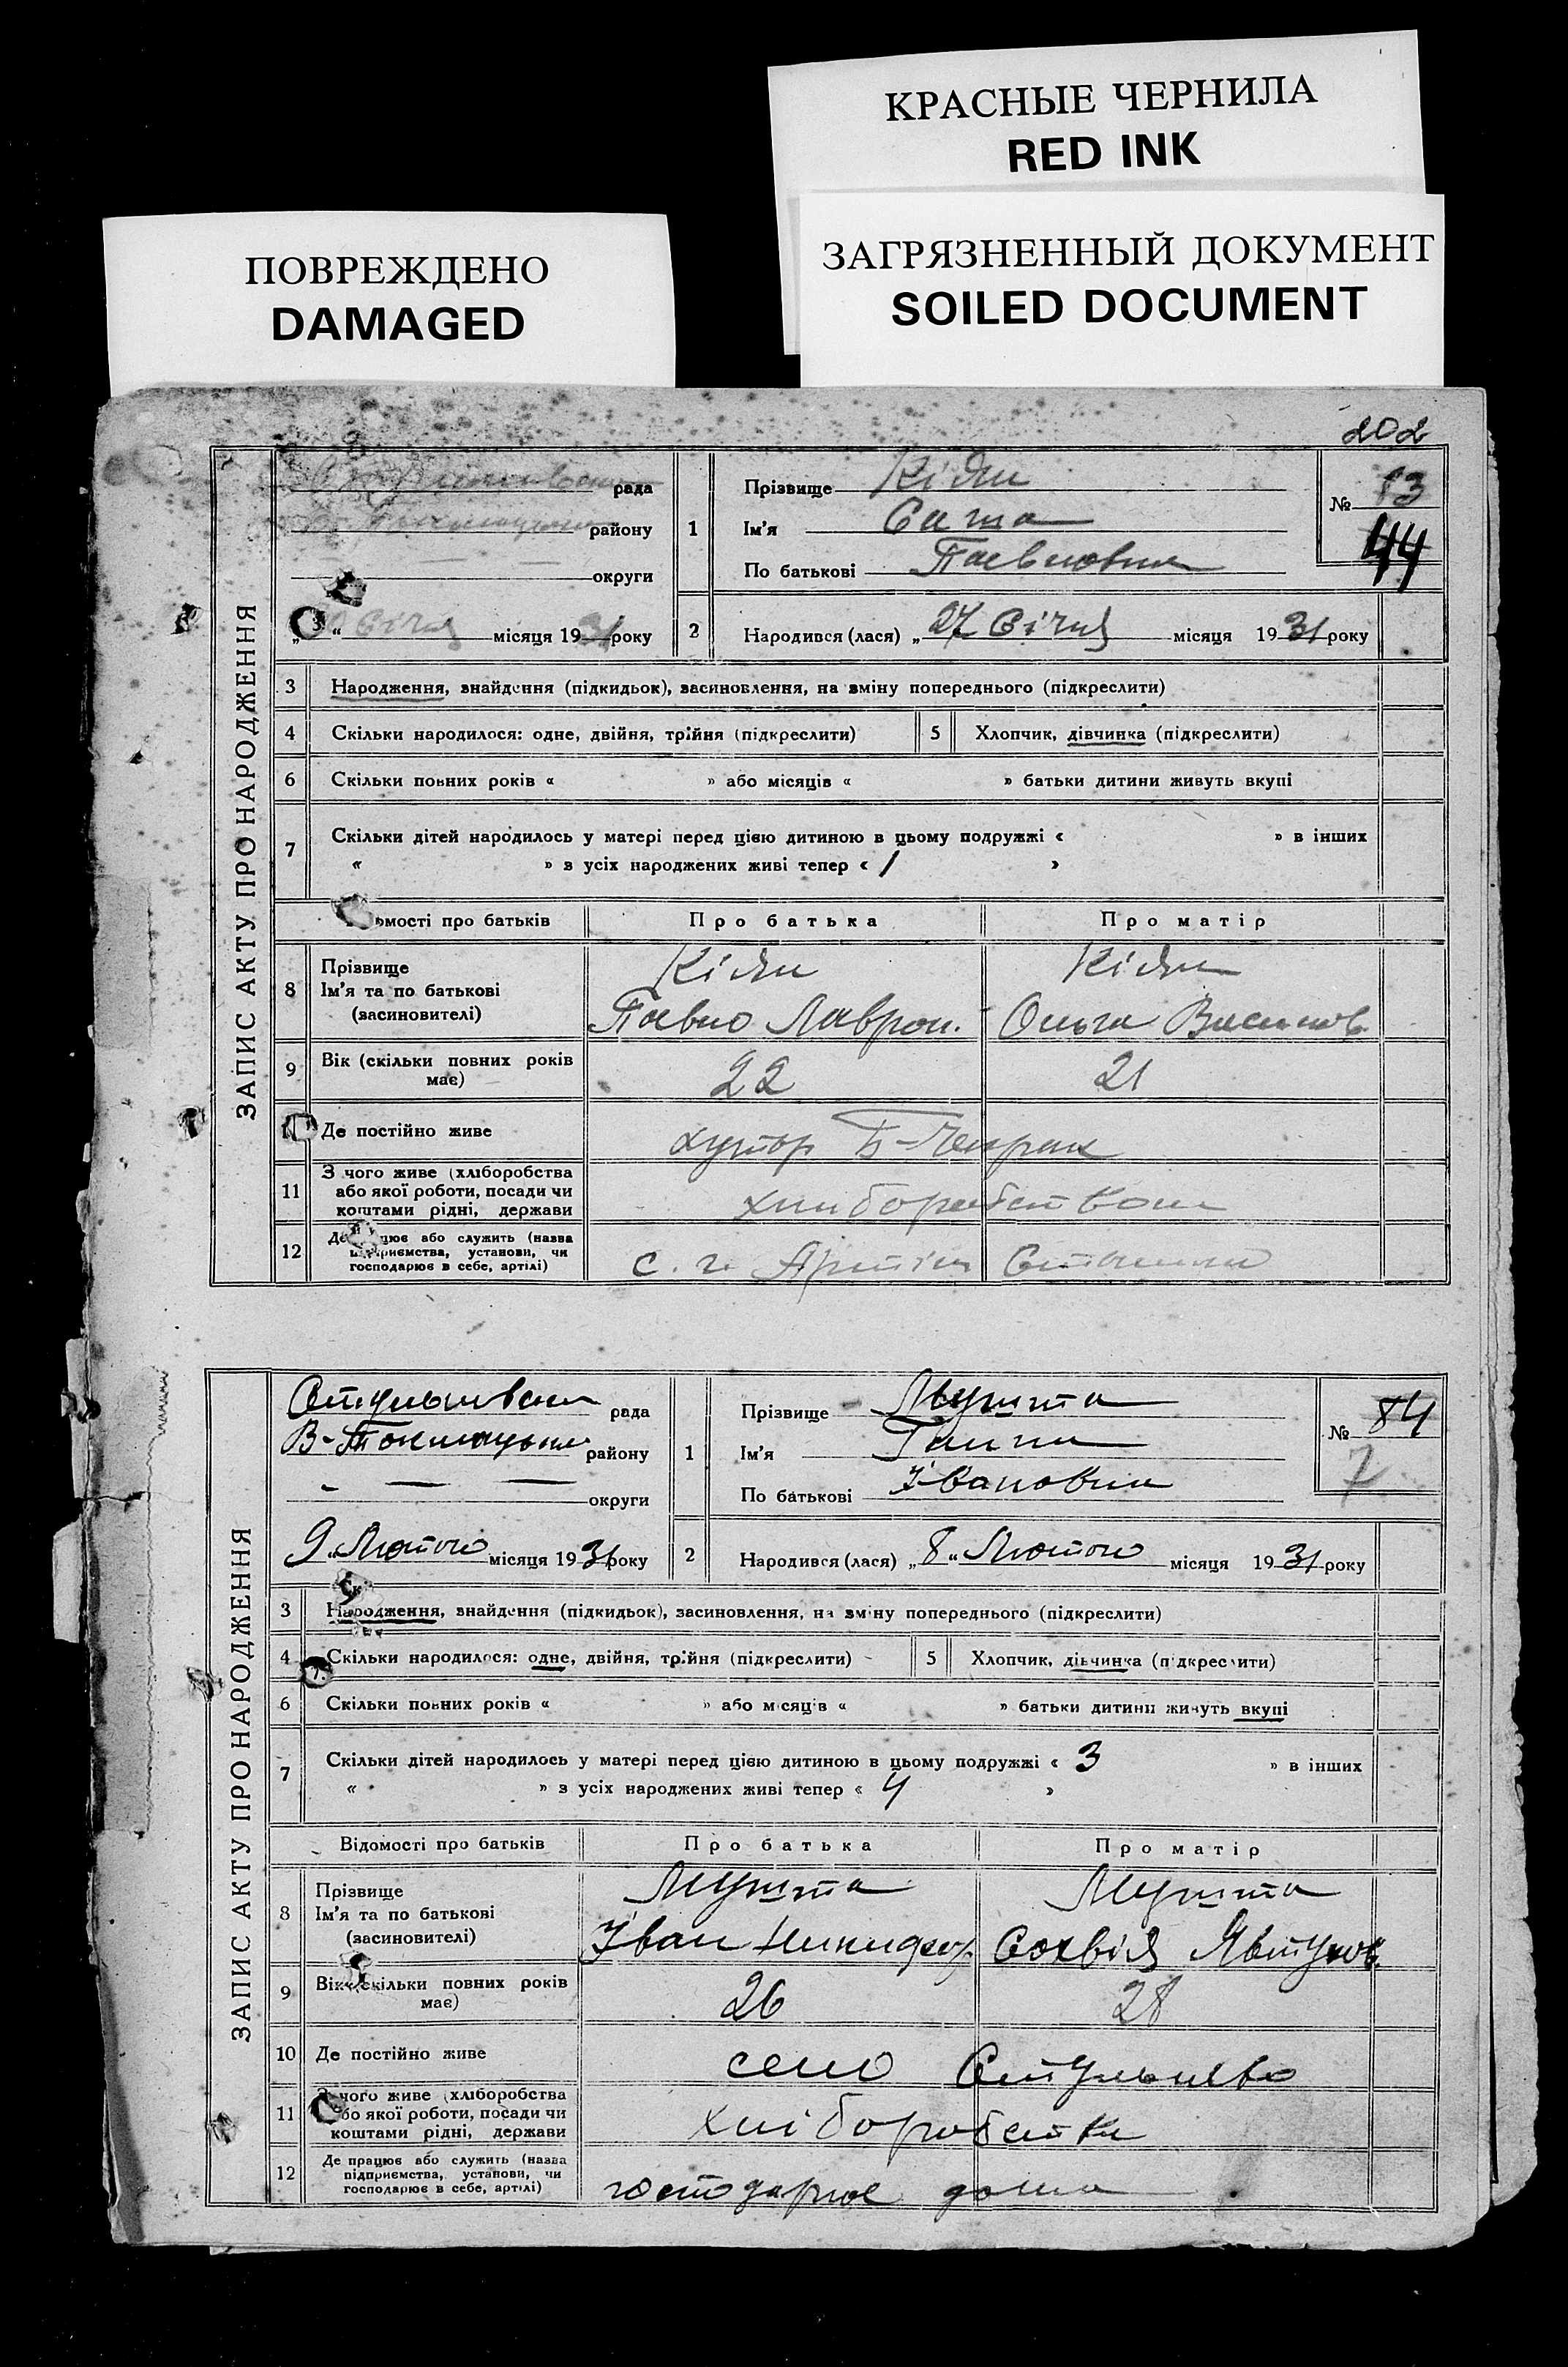 КРАСНЫЕ ЧЕРНИЛА
RED INK
ПОВРЕЖДЕНО
DAMAGED
ЗАГРЯЗНЕННЫЙ ДОКУМЕНТ
SOILED DOCUMENT
202
ЗАПИС АКТУ ПРО НАРОДЖЕННЯ
рада
району
округи
Січня місяця 1931 року
1 Прізвище
Ім'я Саша
По батькові Павловна
№ 83
44
2 Народився (лася) „27 Січня місяця 1931 року
3 Народження, знайдення (підкидьок), засиновлення, на зміну попереднього (підкреслити)
4 Скільки народилося: одне, двійня, трійня (підкреслити) 5 Хлопчик, дівчинка (підкреслити)
6 Скільки повних років « » або місяців « » батьки дитини живуть вкупі
7 Скільки дітей народилось у матері перед цією дитиною в цьому подружжі « » в інших
« » з усіх народжених живі тепер « 1 »
омості про батьків Про батька Про матір
8 Прізвище
Ім'я та по батькові
(засиновителі)
Павло Лаврон. Ольга Василов.
9 Вік (скільки повних років
має) 22 21
Де постійно живе хутор
11 З чого живе (хліборобства
або якої роботи, посади чи
коштами рідні, держави хліборобством
12 працює або служить (назва
підприємства, установи, чи
господарює в себе, артілі) с. г. Артіль
ЗАПИС АКТУ ПРО НАРОДЖЕННЯ
рада
В-Токмацьк району
— — округи
9 „Лютого місяця 1931 року
1 Прізвище Мушта
Ім'я Ганна
По батькові Івановна
№ 84
7
2 Народився (лася) „8“ Лютого місяця 1931 року
3 Народження, знайдення (підкидьок), засиновлення, на зміну попереднього (підкреслити)
4 Скільки народилося: одне, двійня, трійня (підкреслити) 5 Хлопчик, дівчинка (підкреслити)
6 Скільки повних років « » або місяців « » батьки дитини живуть вкупі
7 Скільки дітей народилось у матері перед цією дитиною в цьому подружжі « 3 » в інших
« » з усіх народжених живі тепер « 4 »
Відомості про батьків Про батька Про матір
8 Прізвище Мушта Мушта
Ім'я та по батькові
(засиновителі)
Іван Никифор Сохвія Явтухов.
9 Вік (скільки повних років
має) 26 28
10 Де постійно живе село Стульнево
11 З чого живе (хліборобства
або якої роботи, посади чи
коштами рідні, держави хліборобства
12 Де працює або служить (назва
підприємства, установи, чи
господарює в себе, артілі) господарює дома